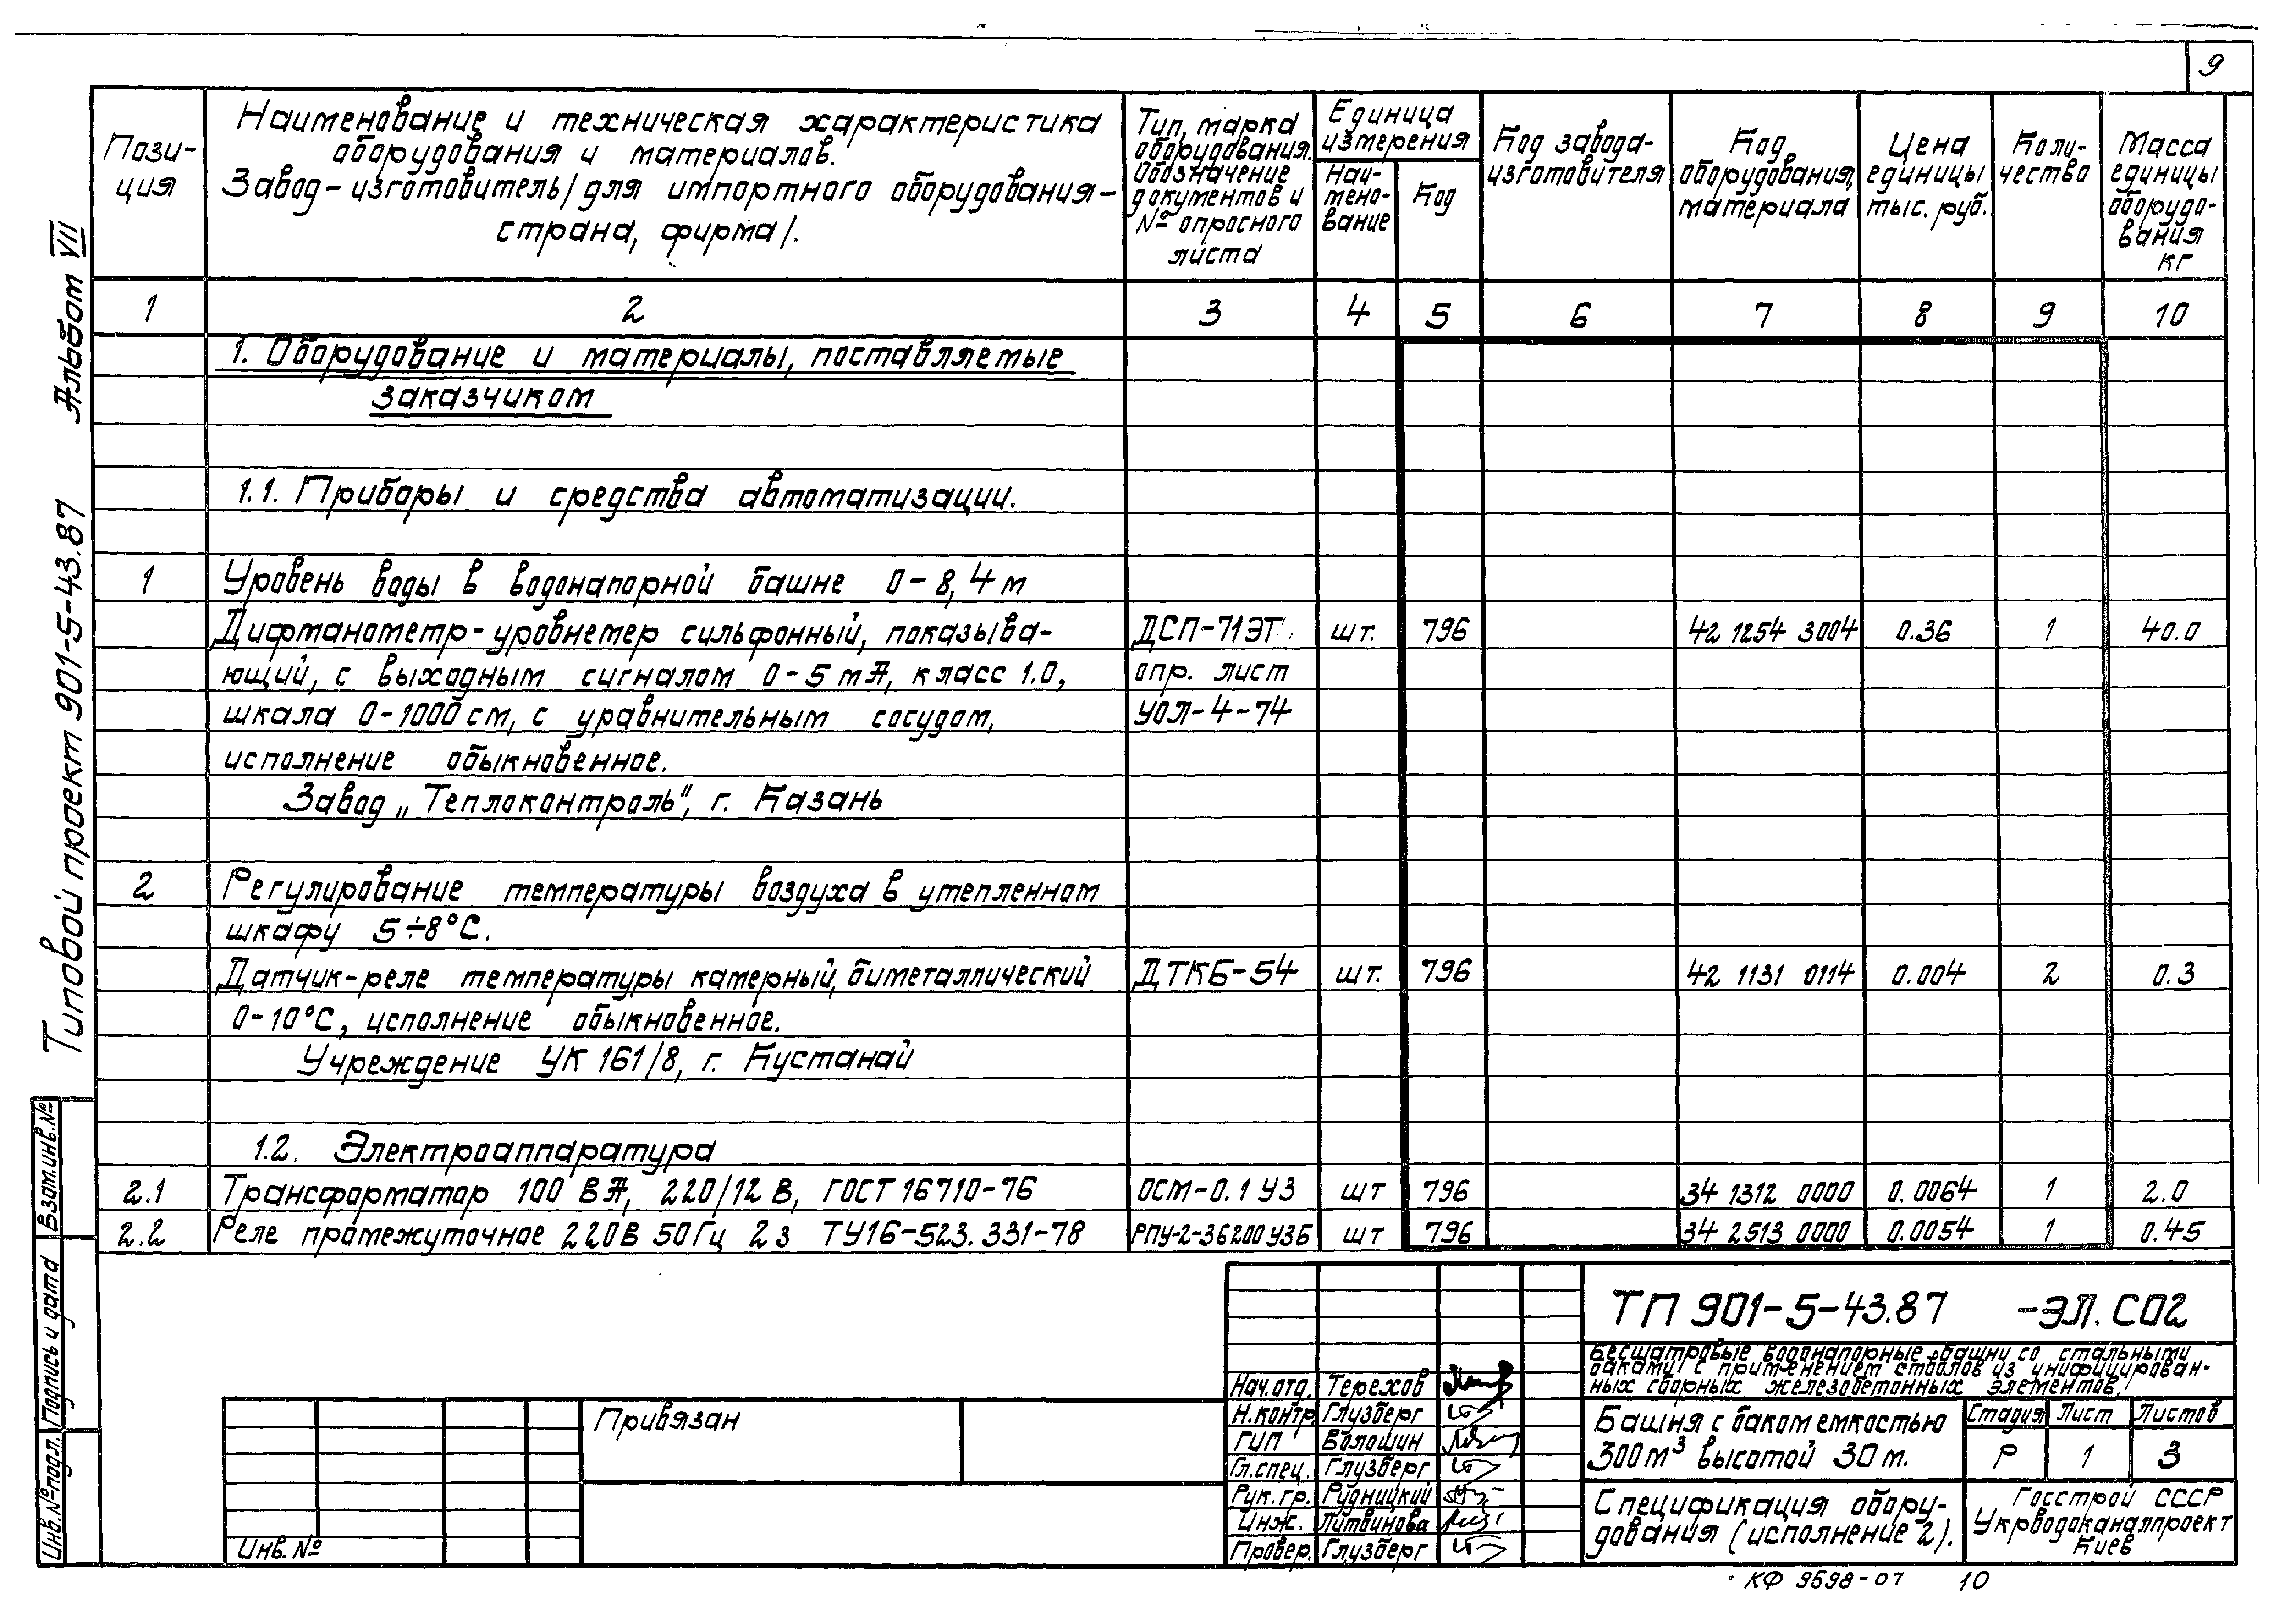 9
Пози-
ция
Наименование и техническая характеристика
оборудования и материалов.
Завод-изготовитель/для импортного оборудования-
страна, фирма/.
Тип, марка
оборудования.
Обозначение
документов и
№ опросного
листа
Единица
измерения
Наи-
мено-
вание
Код
Код завода-
изготовителя
Код
оборудования,
материала
Цена
единицы
тыс. руб.
Коли-
чество
Масса
единицы
оборудо-
вания
кг
1 2 3 4 5 6 7 8 9 10
1. Оборудование и материалы, поставляемые
заказчиком
1.1. Приборы и средства автоматизации.
1 Уровень воды в водонапорной башне 0-8,4 м
Дифманометр-уровнемер сильфонный, показыва- ДСП-71ЭТ шт. 796 42 1254 3004 0.36 1 40.0
ющий, с выходным сигналом 0-5 мА, класс 1.0, опр. лист
шкала 0-1000 см, с уравнительным сосудом, УОЛ-4-74
исполнение обыкновенное.
Завод „Теплоконтроль", г. Казань
2 Регулирование температуры воздуха в утепленном
шкафу 5÷8°С.
Датчик-реле температуры камерный, биметаллический ДТКБ-54 шт. 796 42 1131 0114 0.004 2 0.3
0-10°С, исполнение обыкновенное.
Учреждение УК 161/8, г. Кустанай
1.2. Электроаппаратура
2.1 Трансформатор 100 ВА, 220/12 В, ГОСТ 16710-76 ОСМ-0.1 У3 шт 796 34 1312 0000 0.0064 1 2.0
2.2 Реле промежуточное 220В 50Гц 2з ТУ16-523.331-78 РПУ-2-36200У3Б шт 796 34 2513 0000 0.0054 1 0.45
Типовой проект 901-5-43.87 Альбом VII
Взам.инв.№
Подпись и дата
Инв.№ подл.
Привязан
Инв. №
Нач.отд. Терехов
Н.контр Глузберг
ГИП Волошин
Гл.спец. Глузберг
Рук.гр. Рудницкий
Инж. Литвинова
Провер. Глузберг
ТП 901-5-43.87 -ЭЛ.СО2
Бесшатровые водонапорные башни со стальными
баками с применением стволов из унифицирован-
ных сборных железобетонных элементов.
Башня с баком емкостью
300м³ высотой 30 м.
Стадия Лист Листов
Р 1 3
Спецификация обору-
дования (исполнение 2).
Госстрой СССР
Укрводоканалпроект
Киев
КФ 9598-07 10